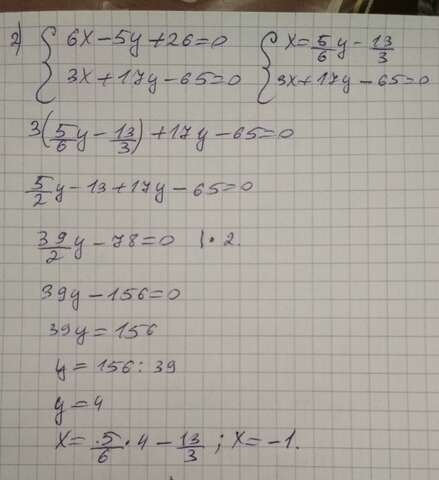 2) { 6x-5y+26=0 { x=5/6y-13/3
3x+17y-65=0 3x+17y-65=0
3(5/6y-13/3)+17y-65=0
5/2y-13+17y-65=0
39/2y-78=0 |·2.
39y-156=0
39y=156
y=156:39
y=4
x=5/6·4-13/3; x=-1.